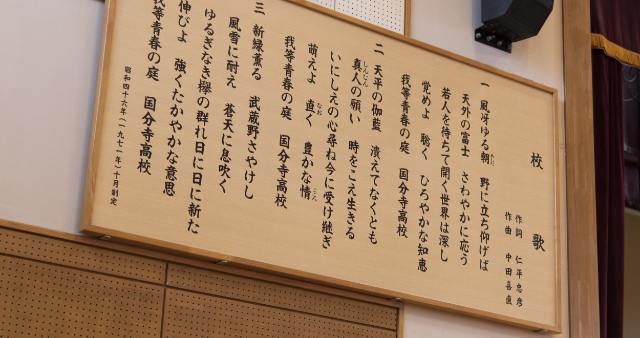 校歌
作詞 仁平忠彦
作曲 中田喜直
一 風冴ゆる朝 野に立ち仰げば
天外の富士 さわやかに応う
若人を待ちて開く世界は深し
覚めよ 聡く ひろやかな知恵
我等青春の庭 国分寺高校
二 天平の伽藍 潰えてなくとも
真人の願い 時をこえ生きる
いにしえの心尋ね今に受け継ぎ
萌えよ 直く 豊かな情
我等青春の庭 国分寺高校
三 新緑薫る 武蔵野さやけし
風雪に耐え 蒼天に息吹く
ゆるぎなき欅の群れ日に日に新た
伸びよ 強くたかやかな意思
我等青春の庭 国分寺高校
昭和四十六年(一九七一年)十月制定